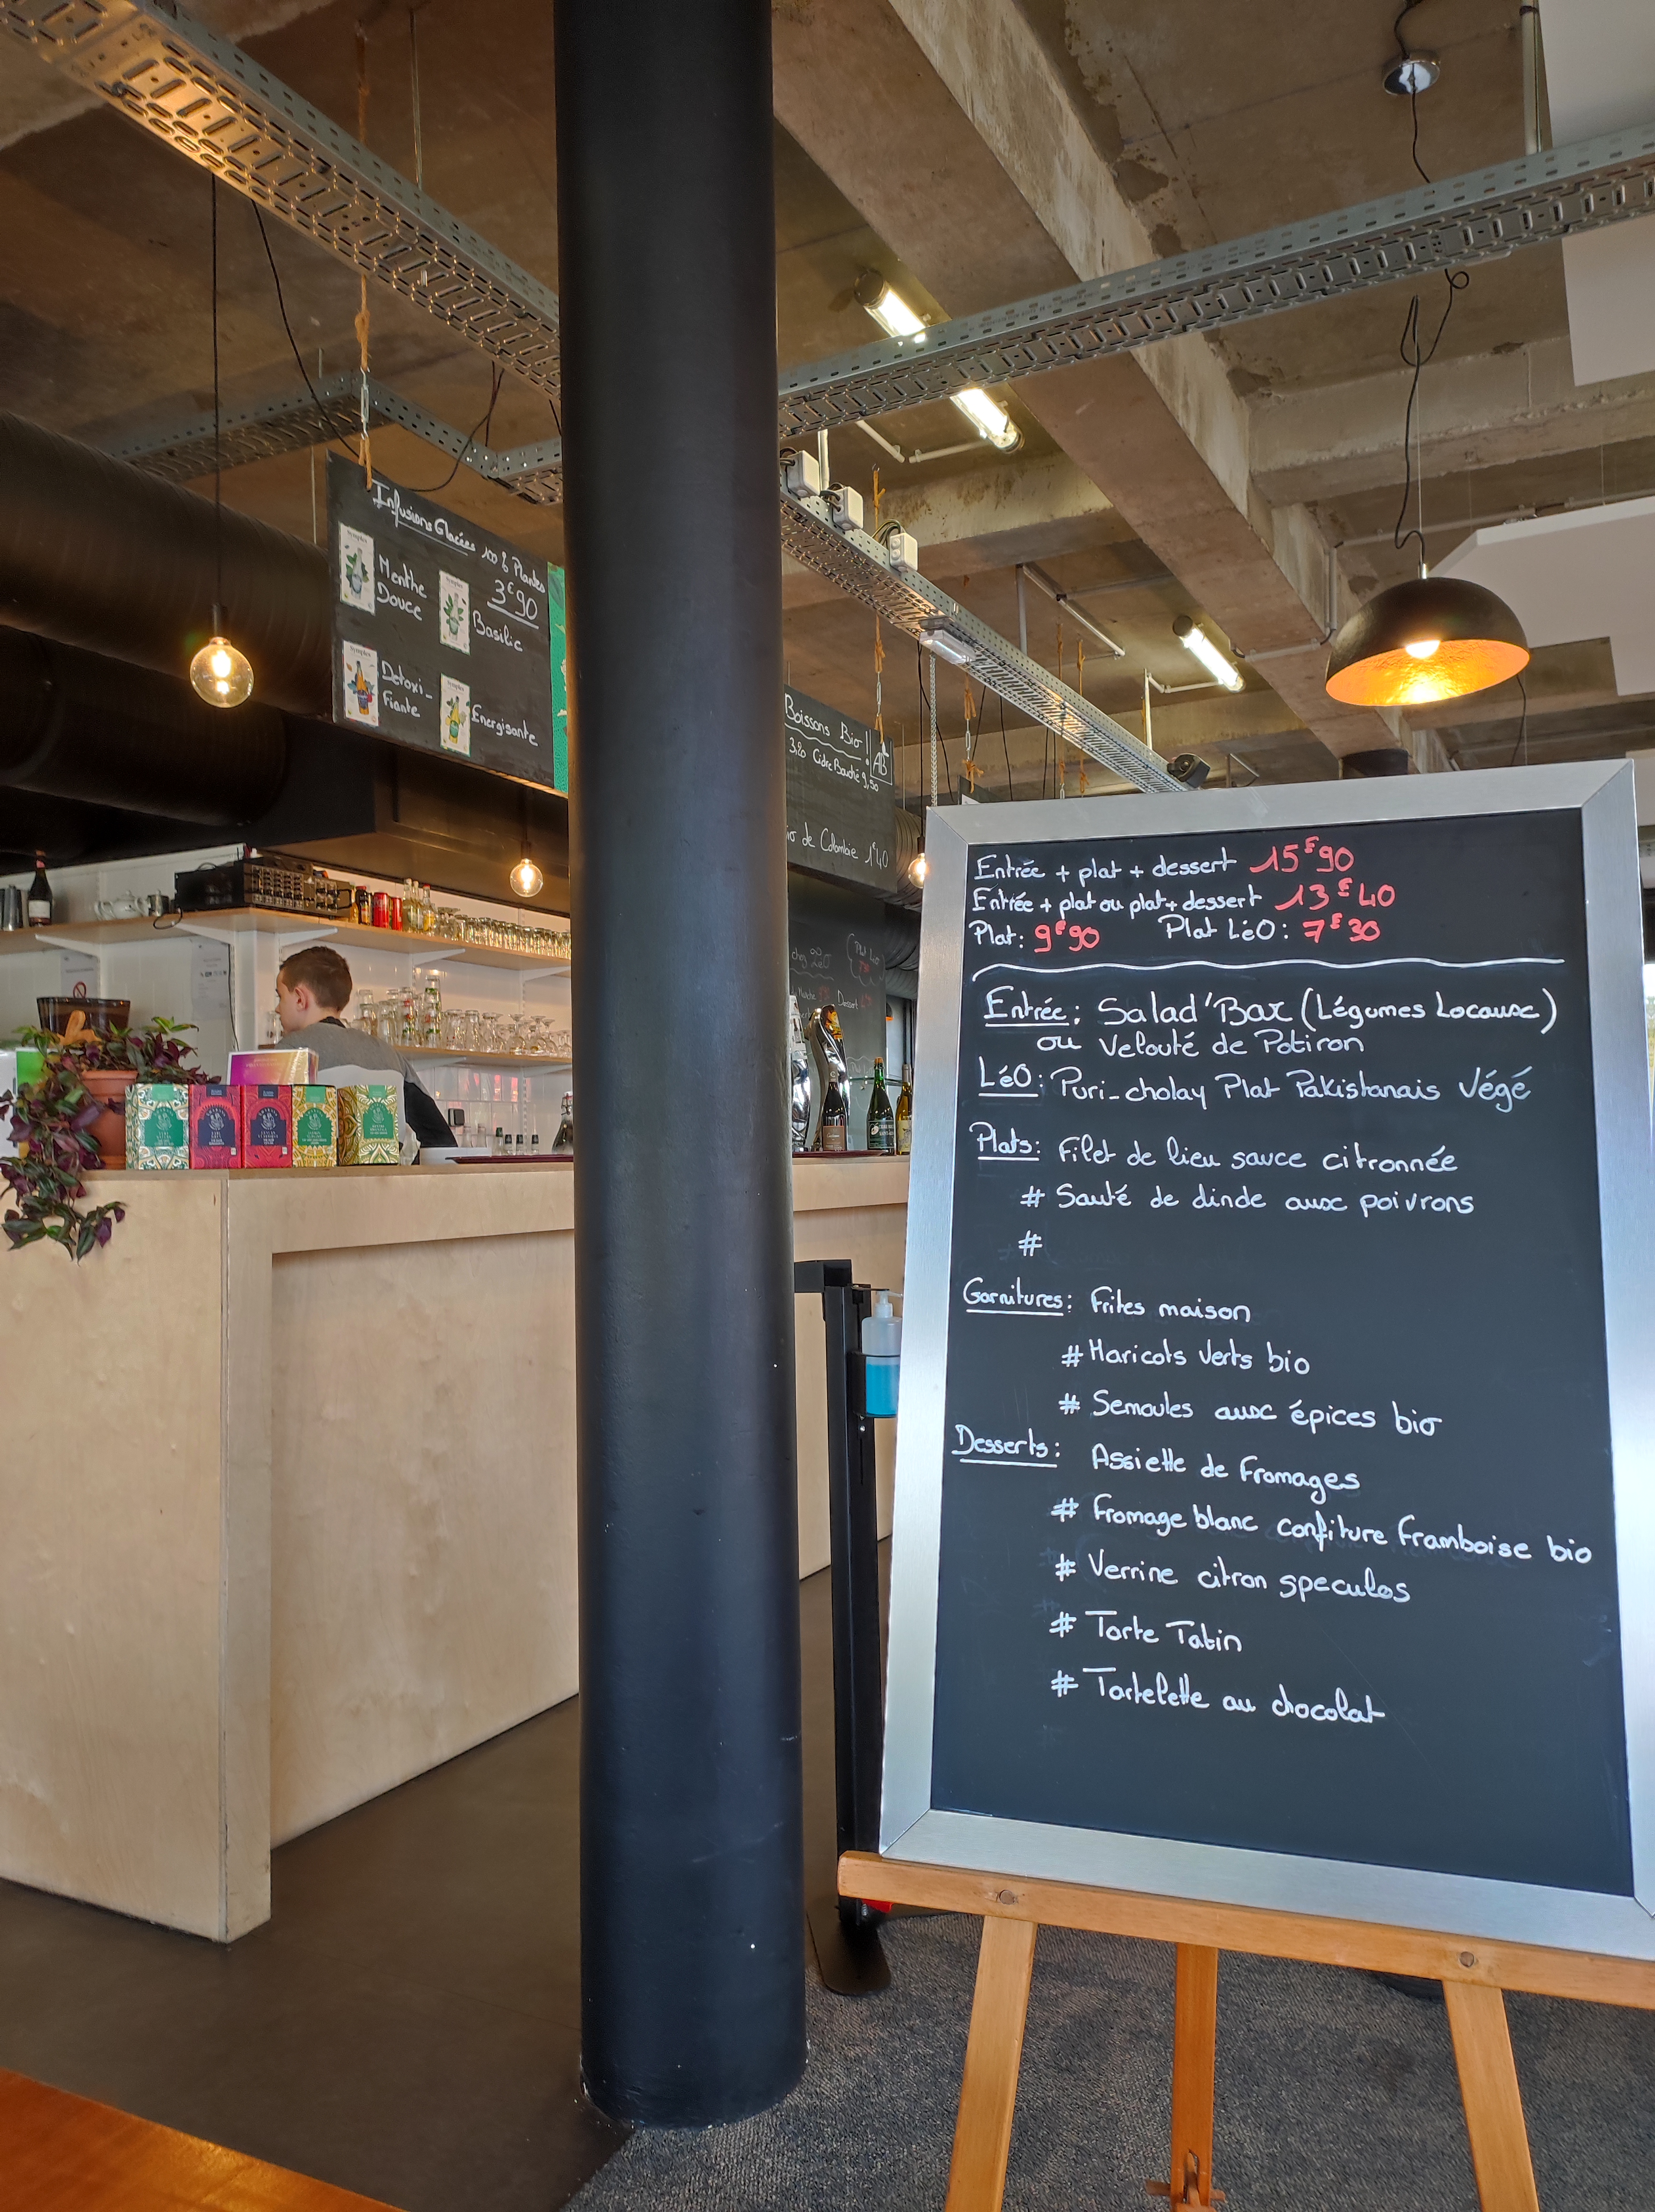 Infusions Glacées 100% Plantes
3€90
Menthe
Douce
Basilic
Detoxi-
fiante
Energisante
Boissons Bio
AB
3,20 Cidre Bouché 9,50
de Colombie 1€40
Entrée + plat + dessert 15€90
Entrée + plat ou plat + dessert 13€40
Plat: 9€90 Plat LéO: 7€30
Entrée: Salad'Bar (Légumes Locaux)
ou Velouté de Potiron
LéO: Puri-cholay Plat Pakistanais Végé
Plats: Filet de lieu sauce citronnée
# Sauté de dinde aux poivrons
#
Garnitures: Frites maison
# Haricots verts bio
# Semoules aux épices bio
Desserts: Assiette de Fromages
# Fromage blanc confiture framboise bio
# Verrine citron speculos
# Tarte Tatin
# Tartelette au chocolat